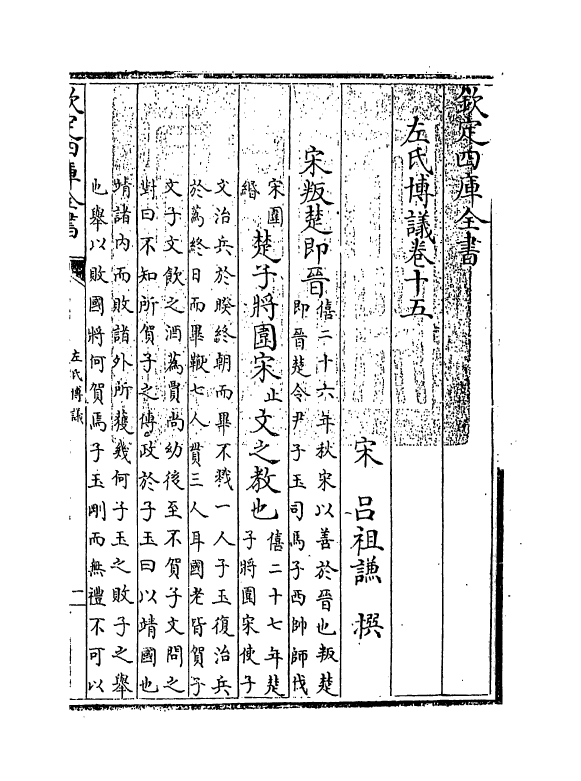 欽定四庫全書
左氏博議卷十五
宋 呂祖謙 撰
宋叛楚即晉
僖二十六年秋宋以善於晉也叛楚
即晉楚令尹子玉司馬子西帥師伐
宋圍
緡
楚子將圍宋止文之教也
僖二十七年楚
子將圍宋使子
文治兵於暌終朝而畢不戮一人子玉復治兵
於蒍終日而畢鞭七人貫三人耳國老皆賀子
文子文飲之酒蒍賈尚幼後至不賀子文問之
對曰不知所賀子之傳政於子玉曰以靖國也
靖諸內而敗諸外所獲幾何子玉之敗子之舉
也舉以敗國將何賀焉子玉剛而無禮不可以
欽定四庫全書
左氏博議